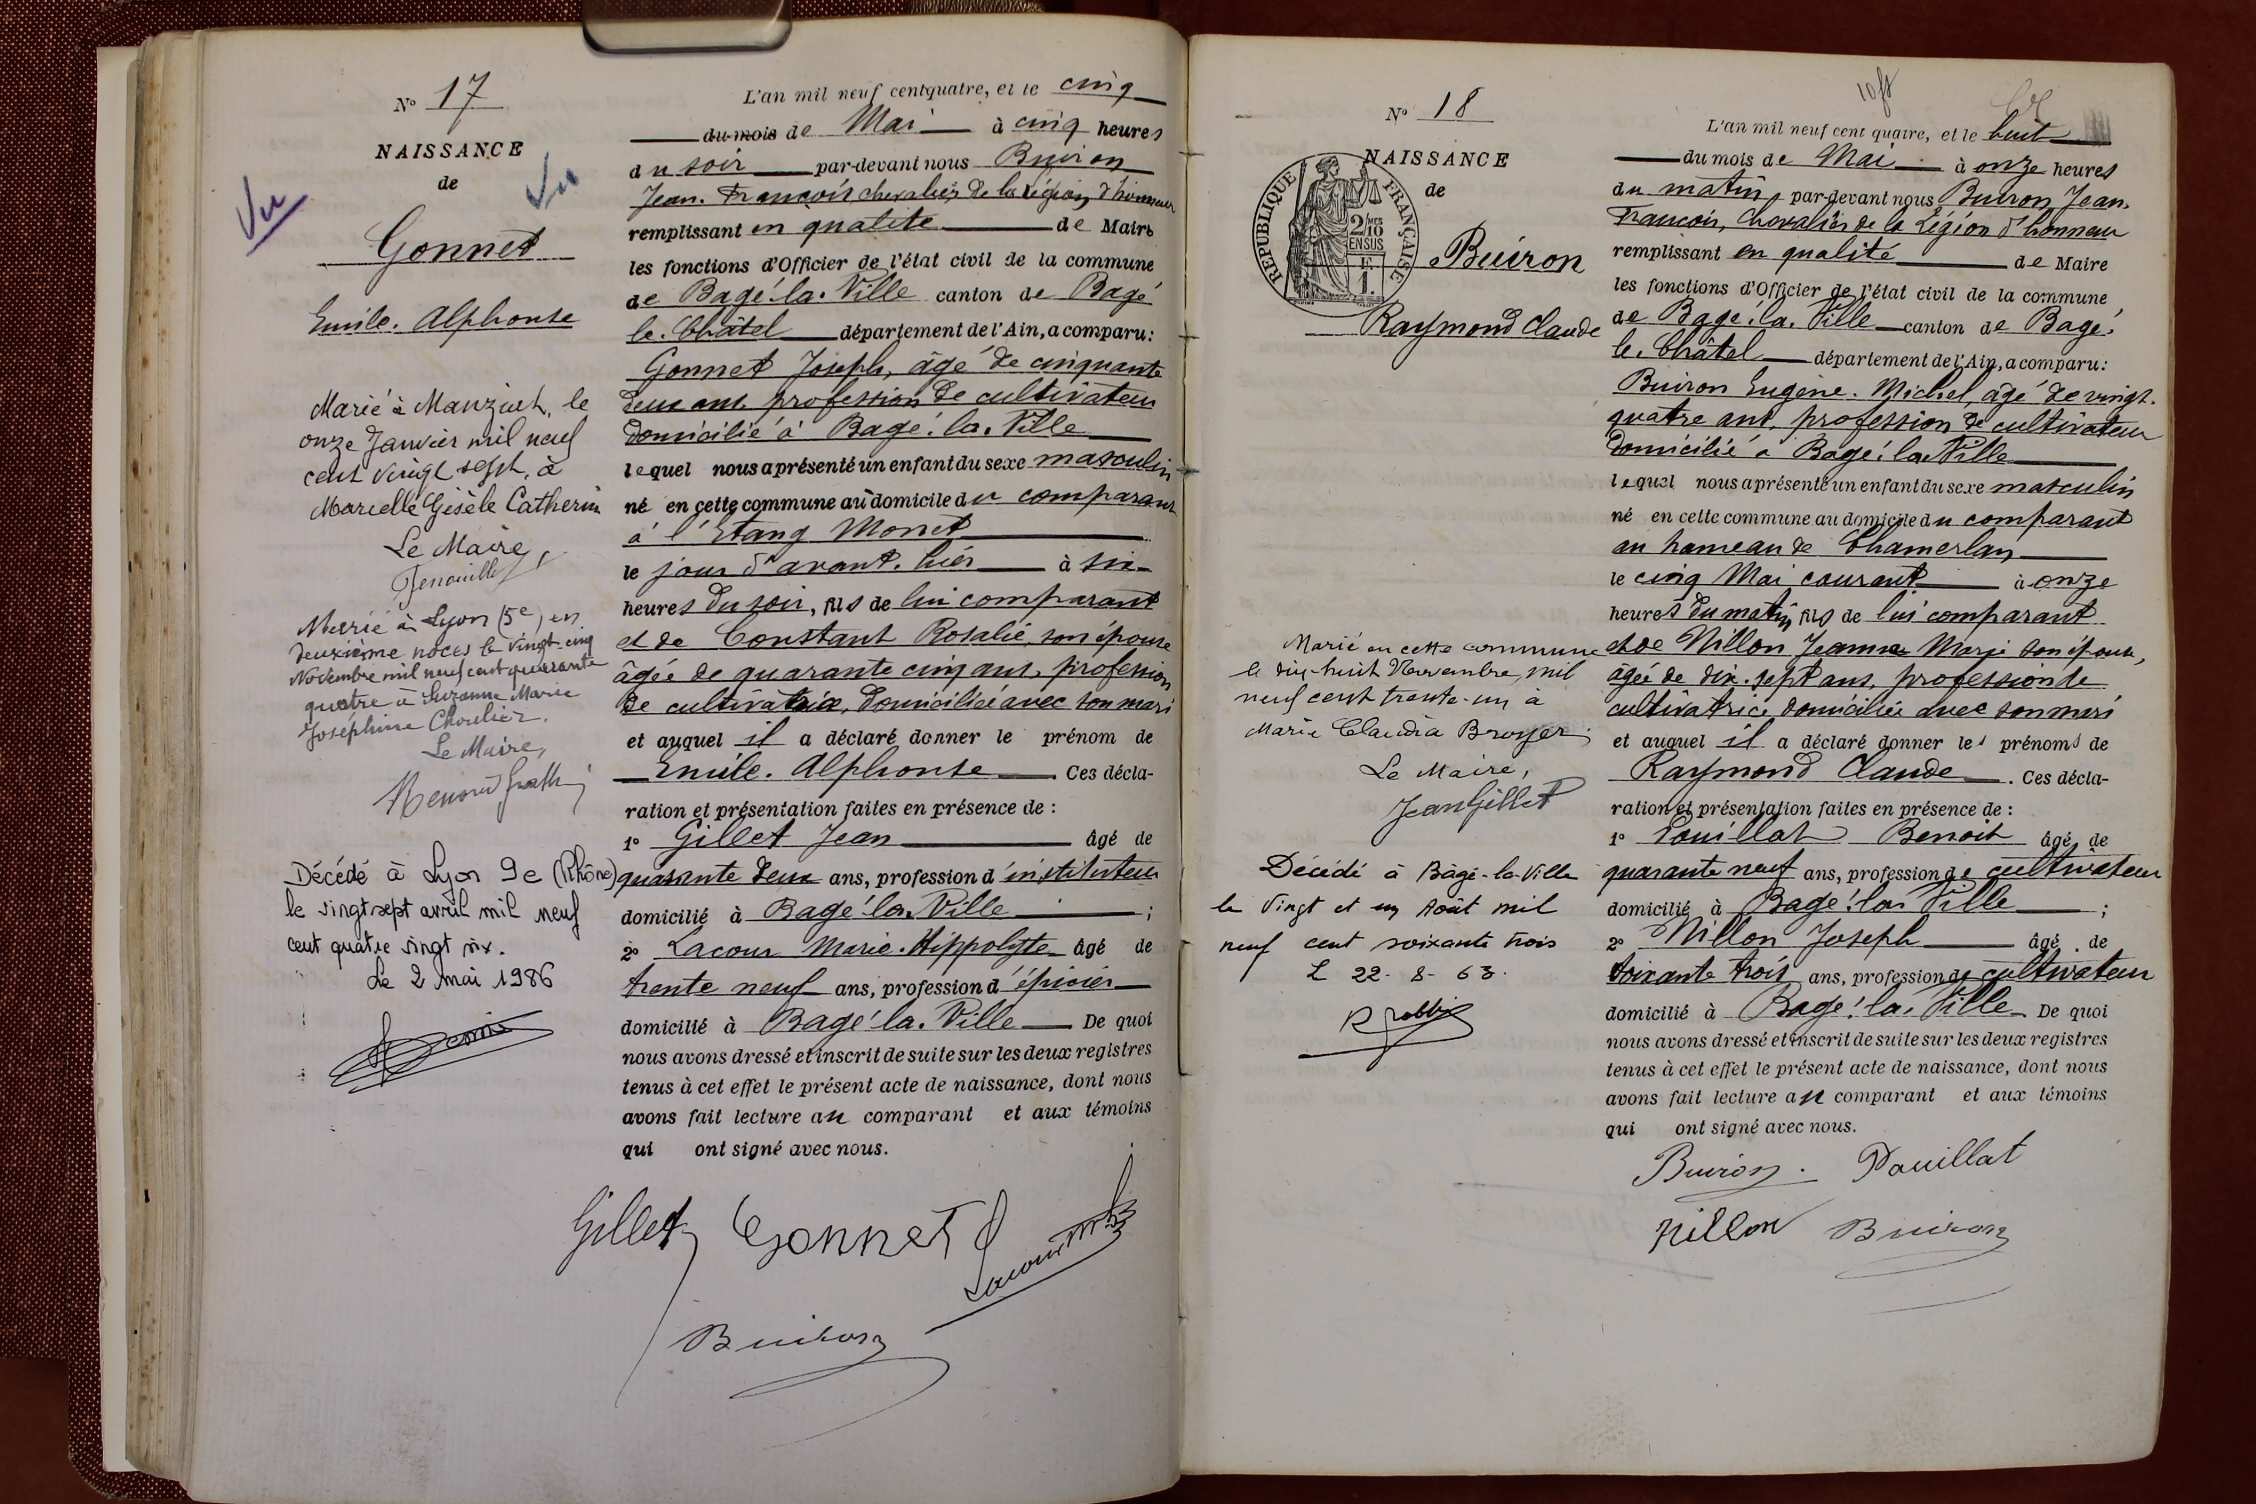 N° 17
NAISSANCE
de
Vu
Vu
Gonnet
Emile. Alphonse
Marié à Manziat, le
onze Janvier mil neuf
cent vingt sept, à
Marcelle Gisèle Catherin
Le Maire,
Marié à Lyon (5e) en
deuxième noces le vingt-cinq
Novembre mil neuf cent quarante
quatre à Suzanne Marie
Joséphine Choulier.
Le Maire,
Décédé à Lyon 9e (Rhône)
le vingt sept avril mil neuf
cent quatre vingt six.
Le 2 mai 1986
L'an mil neuf cent quatre, et le cinq
du mois de Mai à cinq heures
du soir par-devant nous Buiron
Jean. François chevalier de la Légion d'honneur
remplissant en qualité de Maire
les fonctions d'Officier de l'état civil de la commune
de Bagé-la-Ville canton de Bagé
le-Châtel département de l'Ain, a comparu:
Gonnet Joseph, âgé de cinquante
deux ans profession de cultivateur
domicilié à Bagé-la-Ville
lequel nous a présenté un enfant du sexe masculin
né en cette commune au domicile du comparant
à l'Etang Monet
le jour d'avant-hier à six
heures du soir, fils de lui comparant
et de Constant Rosalie, son épouse
âgée de quarante cinq ans, profession
de cultivatrice, domiciliée avec son mari
et auquel il a déclaré donner le prénom de
Emile. Alphonse. Ces décla-
ration et présentation faites en présence de :
1° Gillet Jean âgé de
quarante deux ans, profession d'instituteur
domicilié à Bagé-la-Ville ;
2° Lacour Marie-Hippolyte âgé de
trente neuf ans, profession d'épicier
domicilié à Bagé-la-Ville De quoi
nous avons dressé et inscrit de suite sur les deux registres
tenus à cet effet le présent acte de naissance, dont nous
avons fait lecture au comparant et aux témoins
qui ont signé avec nous.
Gillet Gonnet J Lacour
Buiron
N° 18
NAISSANCE
de
RÉPUBLIQUE FRANÇAISE
2/10
EN SUS
1.
Buiron
Raymond Claude
Marié en cette commune
le dix-huit Novembre, mil
neuf cent trente-un à
Marie Claudia Broyer
Le Maire,
Jean Gillet
Décédé à Bâgé-la-Ville
le Vingt et un Août mil
neuf cent soixante trois
L 22-8-63.
L'an mil neuf cent quatre, et le huit
du mois de Mai à onze heures
du matin, par-devant nous Buiron Jean-
François, Chevalier de la Légion d'honneur
remplissant en qualité de Maire
les fonctions d'Officier de l'état civil de la commune
de Bagé-la-Ville canton de Bagé-
le-Châtel département de l'Ain, a comparu:
Buiron Eugène. Michel, âgé de vingt-
quatre ans, profession de cultivateur
domicilié à Bagé-la-Ville
lequel nous a présenté un enfant du sexe masculin
né en cette commune au domicile du comparant
au hameau de Chamerlan
le cinq Mai courant à onze
heures du matin, fils de lui comparant
et de Nillon Jeanne Marie son épouse,
âgée de dix-sept ans, profession de
cultivatrice domiciliée avec son mari
et auquel il a déclaré donner les prénoms de
Raymond Claude. Ces décla-
ration et présentation faites en présence de :
1° Pouillat Benoit âgé de
quarante neuf ans, profession de cultivateur
domicilié à Bagé-la-Ville ;
2° Nillon Joseph âgé de
soixante trois ans, profession de cultivateur
domicilié à Bagé-la-Ville De quoi
nous avons dressé et inscrit de suite sur les deux registres
tenus à cet effet le présent acte de naissance, dont nous
avons fait lecture au comparant et aux témoins
qui ont signé avec nous.
Buiron. Pouillat
Nillon Buiron